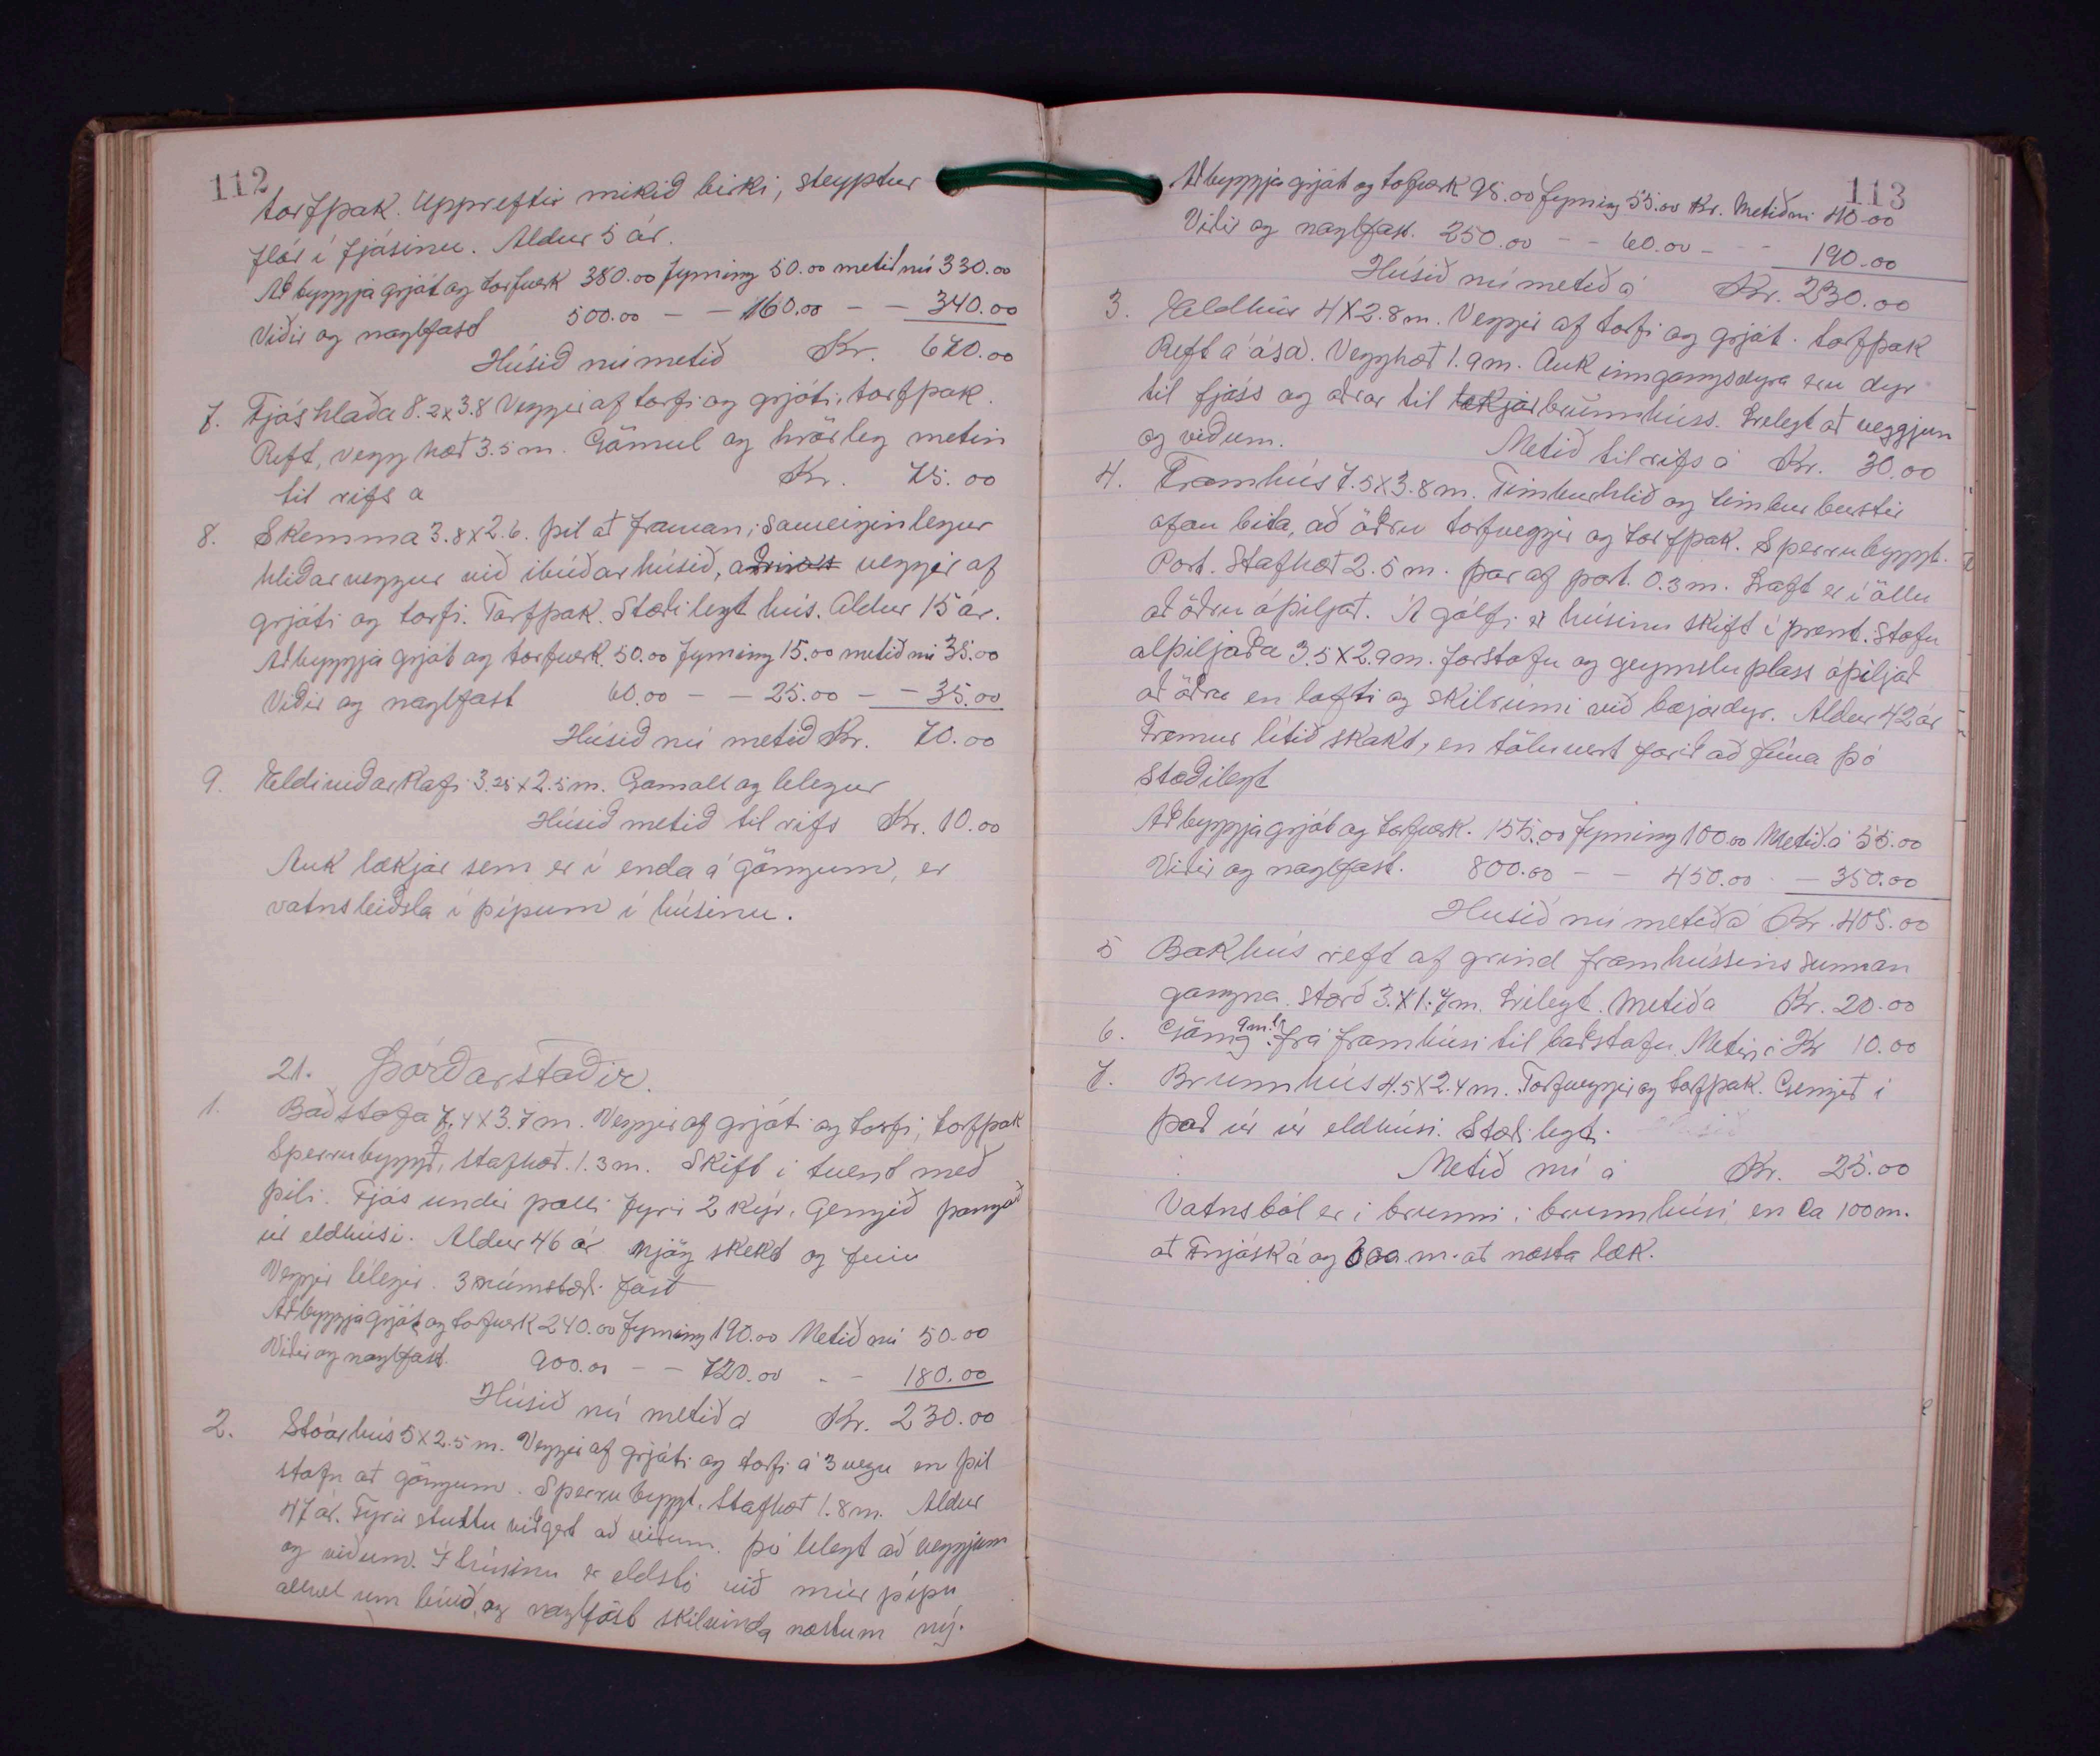 112
torfþak. Uppreftir mikið birki, steyptur
flór í fjósinu. Aldur 5 ár.
Að byggja grjót og torfverk 380.00 fyrning 50.00 metið nú 330.00
Viðir og naglfast 500.00 - - 160.00 - - 340.00
Húsið nú metið Kr. 670.00
7. Fjós hlaða 8.2x3.8 Veggir af torfi og grjóti, torfþak.
Reft, vegg hæð 3.5 m. Gömul og hrörleg metin
til rifs a Kr. 75.00
8. Skemma 3.8x2.6. þil að framan; sameiginlegur
hliðarveggur við íbúðarhúsið, veggir af
grjóti og torfi. Torfþak. Stæðilegt hús. Aldur 15 ár.
Að byggja grjót og torfverk. 50.00 fyrning 15.00 metið nú 35.00
Viðir og naglfast 60.00 - - 25.00 - - 35.00
Húsið nú metið Kr. 70.00
9. Eldiviðarkofi 3.25x2.5 m. Gamall og lelegur
Húsið metið til rifs Kr. 10.00
Auk lækjar sem er í enda á göngum, er
vatnsleiðsla í pípum í húsinu.
21. Þórðarstaðir.
1. Baðstofa 7,4x3.7 m. Veggir af grjóti og torfi, torfþak
Sperrubyggð, stafhæð. 1.3 m. Skift i tvent með
þili. Fjós undir palli fyrir 2 kýr. Gengið þangað
úr eldhúsi. Aldur 46 ár mjög skekt og fúin
Veggir lélegir. 3 rúmstæði föst
Að byggja grjót og torfverk 240.00 fyrning 190.00 Metið nú 50.00
Viðir og naglfast. 900.00 - - 720.00 - - 180.00
Húsið nú metið á Kr. 230.00
2. Stóarhús 5x2.5 m. Veggir af grjóti og torfi á 3 vegu en þil
stafn að göngum. Sperrubyggt. Stafhæð 1.8 m. Aldur
47 ár. Fyrir stuttu viðgert að viðum. þó lelegt að veggjum
og viðum. Í húsinu er eldstó við múrpípu
allvel um búið, og naglföst skilvinda næstum ný.
113
Að byggja grjót og torfverk 95.00 fyrning 55.00 Kr. Metið nú 40.00
Viðir og naglfast. 250.00 - - 60.00 - - - 190.00
Húsið nú metið á Kr. 230.00
3. Eldhús 4x2.8 m. Veggir af torfi og grjót. torfþak
Reft á ása. Vegghæð 1.9 m. Auk inngangsdyra eru dyr
til fjóss og aðrar til lækjar brunnhúss. Lelegt að veggjum
og viðum. Metið til rifs á Kr. 30.00
4. Framhús 7.5x3.8 m. Timburhlið og timburburstir
ofan bita, að öðru torfveggir og torfþak. Sperrubyggt.
Port. Stafhæð 2.5 m. þar af port. 0.3 m. Loft er í öllu
að öðru óþiljað. Á gólfi er húsinu skift í þrent. Stofu
alþiljaða 3.5x2.9 m. forstofu og geymslupláss óþiljað
að öðru en lofti og skilrúmi við bæjardyr. Aldur 42 ár
Fremur lítið skakt, en töluvert farið að fúna þó
stæðilegt
Að byggja grjót og torfverk. 155.00 fyrning 100.00 Metið á 55.00
Viðir og naglfast. 800.00 - - 450.00 - - 350.00
Husið nú metið á Kr. 405.00
5 Bakhús reft af grind framhússins sunnan
gangna. stærð 3.x1.7 m. Lelegt. Metið a Kr. 20.00
6. Göng 9 m. l. frá framhúsi til baðstofu. Metin á Kr 10.00
7. Brunnhús 4.5x2.4 m. Torfveggir og torfþak. Gengið í
það úr úr eldhúsi. Stæðilegt.
Metið nú á Kr. 25.00
Vatnsból er í brunni í brunnhúsi, en ca 100 m.
að Fnjóská og m. að næsta læk.